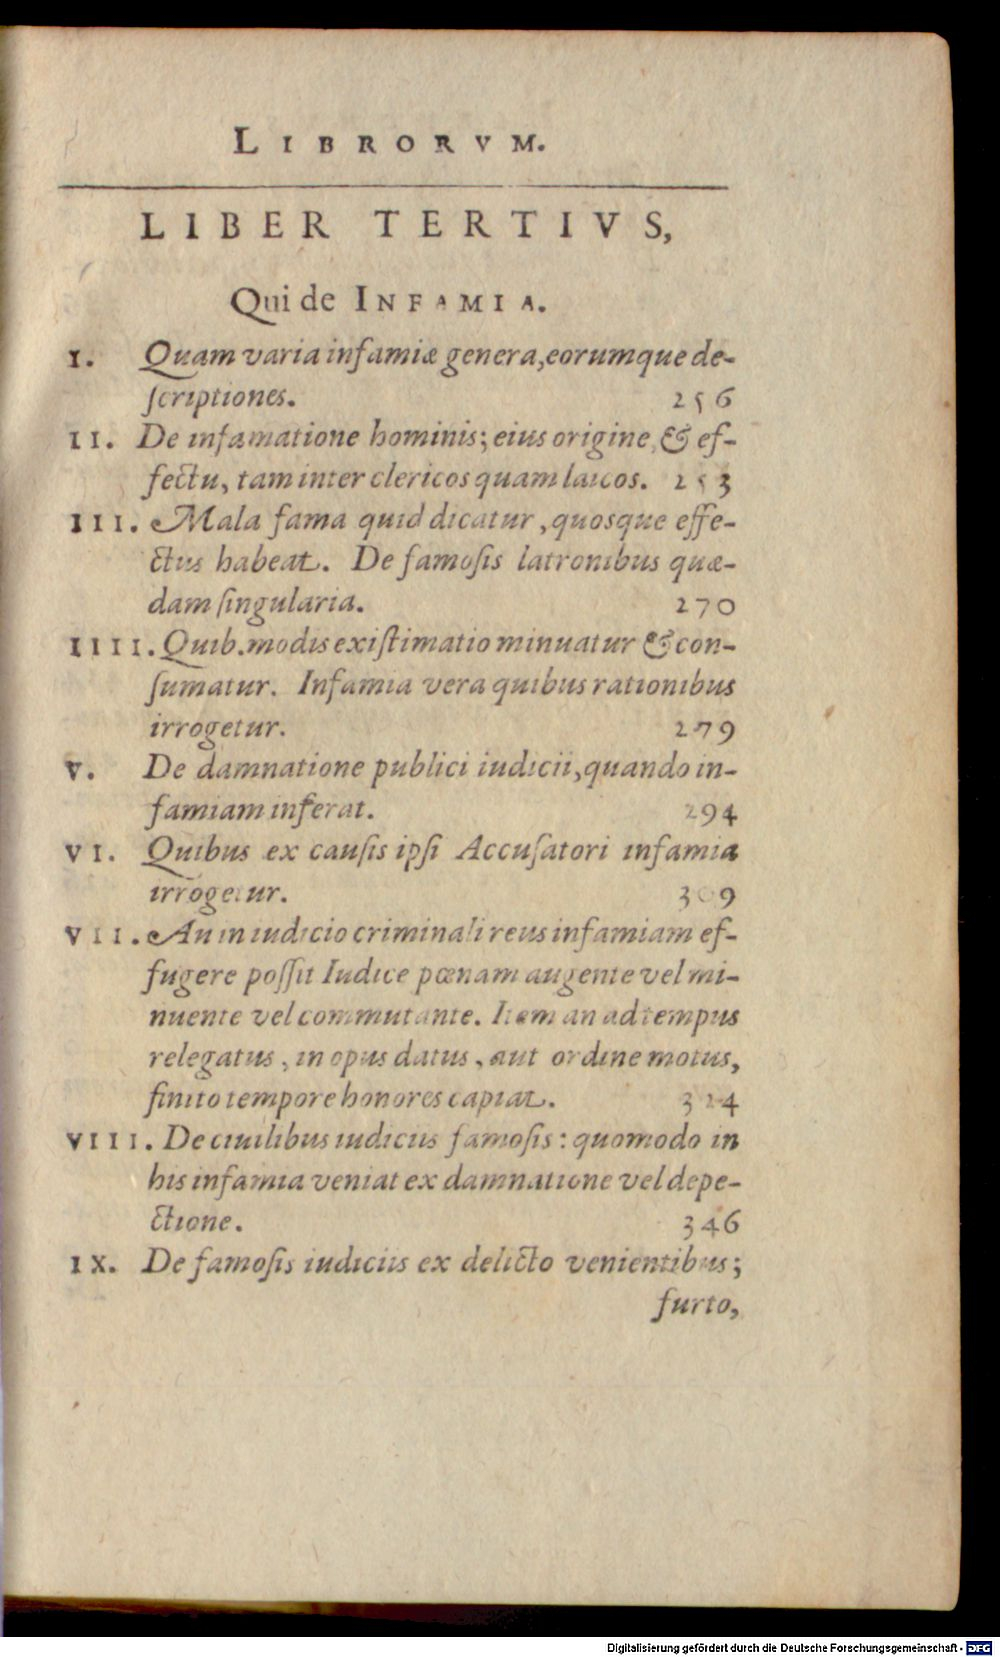 LIBRORVM.
LIBER TERTIVS,
Qui de INFAMIA.
I. Quam varia infamiæ genera, eorumque de-
scriptiones. 256
II. De infamatione hominis; eius origine, & ef-
fectu, tam inter clericos quam laicos. 253
III. Mala fama quid dicatur, quosque effe-
ctus habeat. De famosis latronibus quæ-
dam singularia. 270
IIII. Quib. modis existimatio minuatur & con-
sumatur. Infamia vera quibus rationibus
irrogetur. 279
V. De damnatione publici iudicii, quando in-
famiam inferat. 294
VI. Quibus ex causis ipsi Accusatori infamia
irrogetur. 309
VII. An in iudicio criminali reus infamiam ef-
fugere possit Iudice pœnam augente vel mi-
nuente vel commutante. Item an ad tempus
relegatus, in opus datus, aut ordine motus,
finito tempore honores capiat. 324
VIII. De ciuilibus iudiciis famosis: quomodo in
his infamia veniat ex damnatione vel depe-
ctione. 346
IX. De famosis iudiciis ex delicto venientibus;
furto,
Digitalisierung gefördert durch die Deutsche Forschungsgemeinschaft - DFG